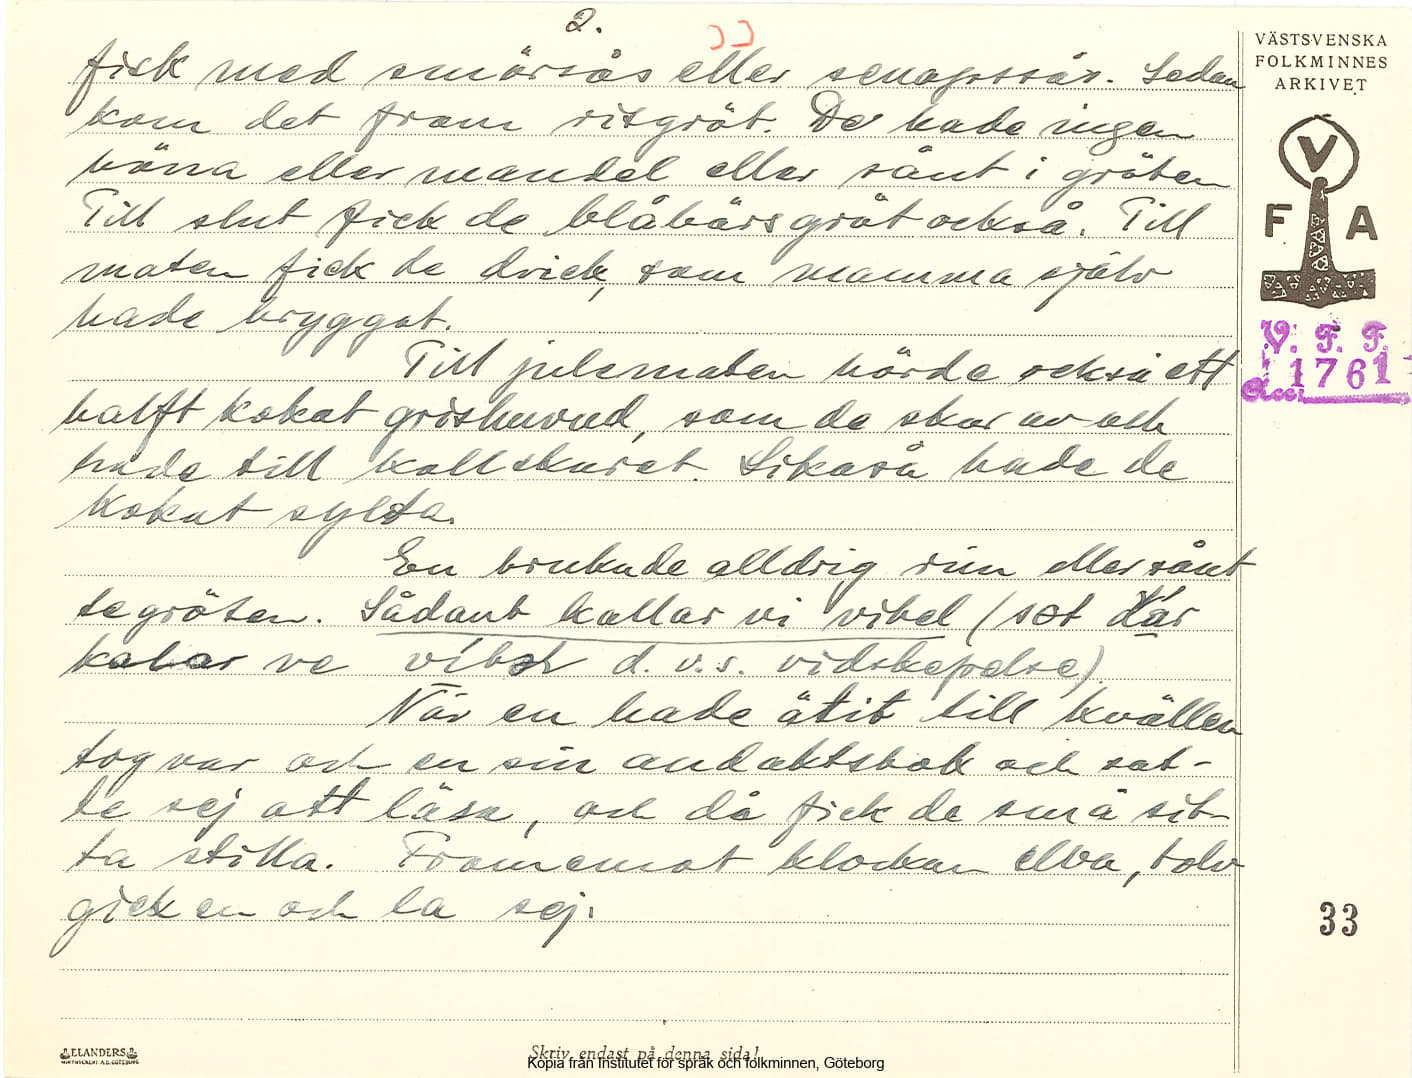 2.
fisk med smörsås eller senapssås. Sedan
kom det fram risgröt. De hade ingen
böna eller mandel eller sånt i gröten
Till slut fick de blåbärsgröt också. Till
maten fick de dricka, som mamma själv
hade bryggat.
Till julematen hörde också ett
halft kokat grishuvud, som de skar av och
hade till kallskuret. Likaså hade de
kokat sylta.
En brukade alldrig rim eller sånt
te gröten. Sådant kallar vi vibel (sot där
kalar ve vibel d.v.s. vidskepelse)
När en hade ätit till kvällen
tog var och en sin andaktsbok och sat-
te sej att läsa, och då fick de små sit-
ta stilla. Framemot klockan elva, tolv
gick en och la sej.
VÄSTSVENSKA
FOLKMINNES
ARKIVET
V
F A
V. F. F.
Acc. 1761
33
ELANDERS
Skriv endast på denna sida!
Kopia från Institutet för språk och folkminnen, Göteborg